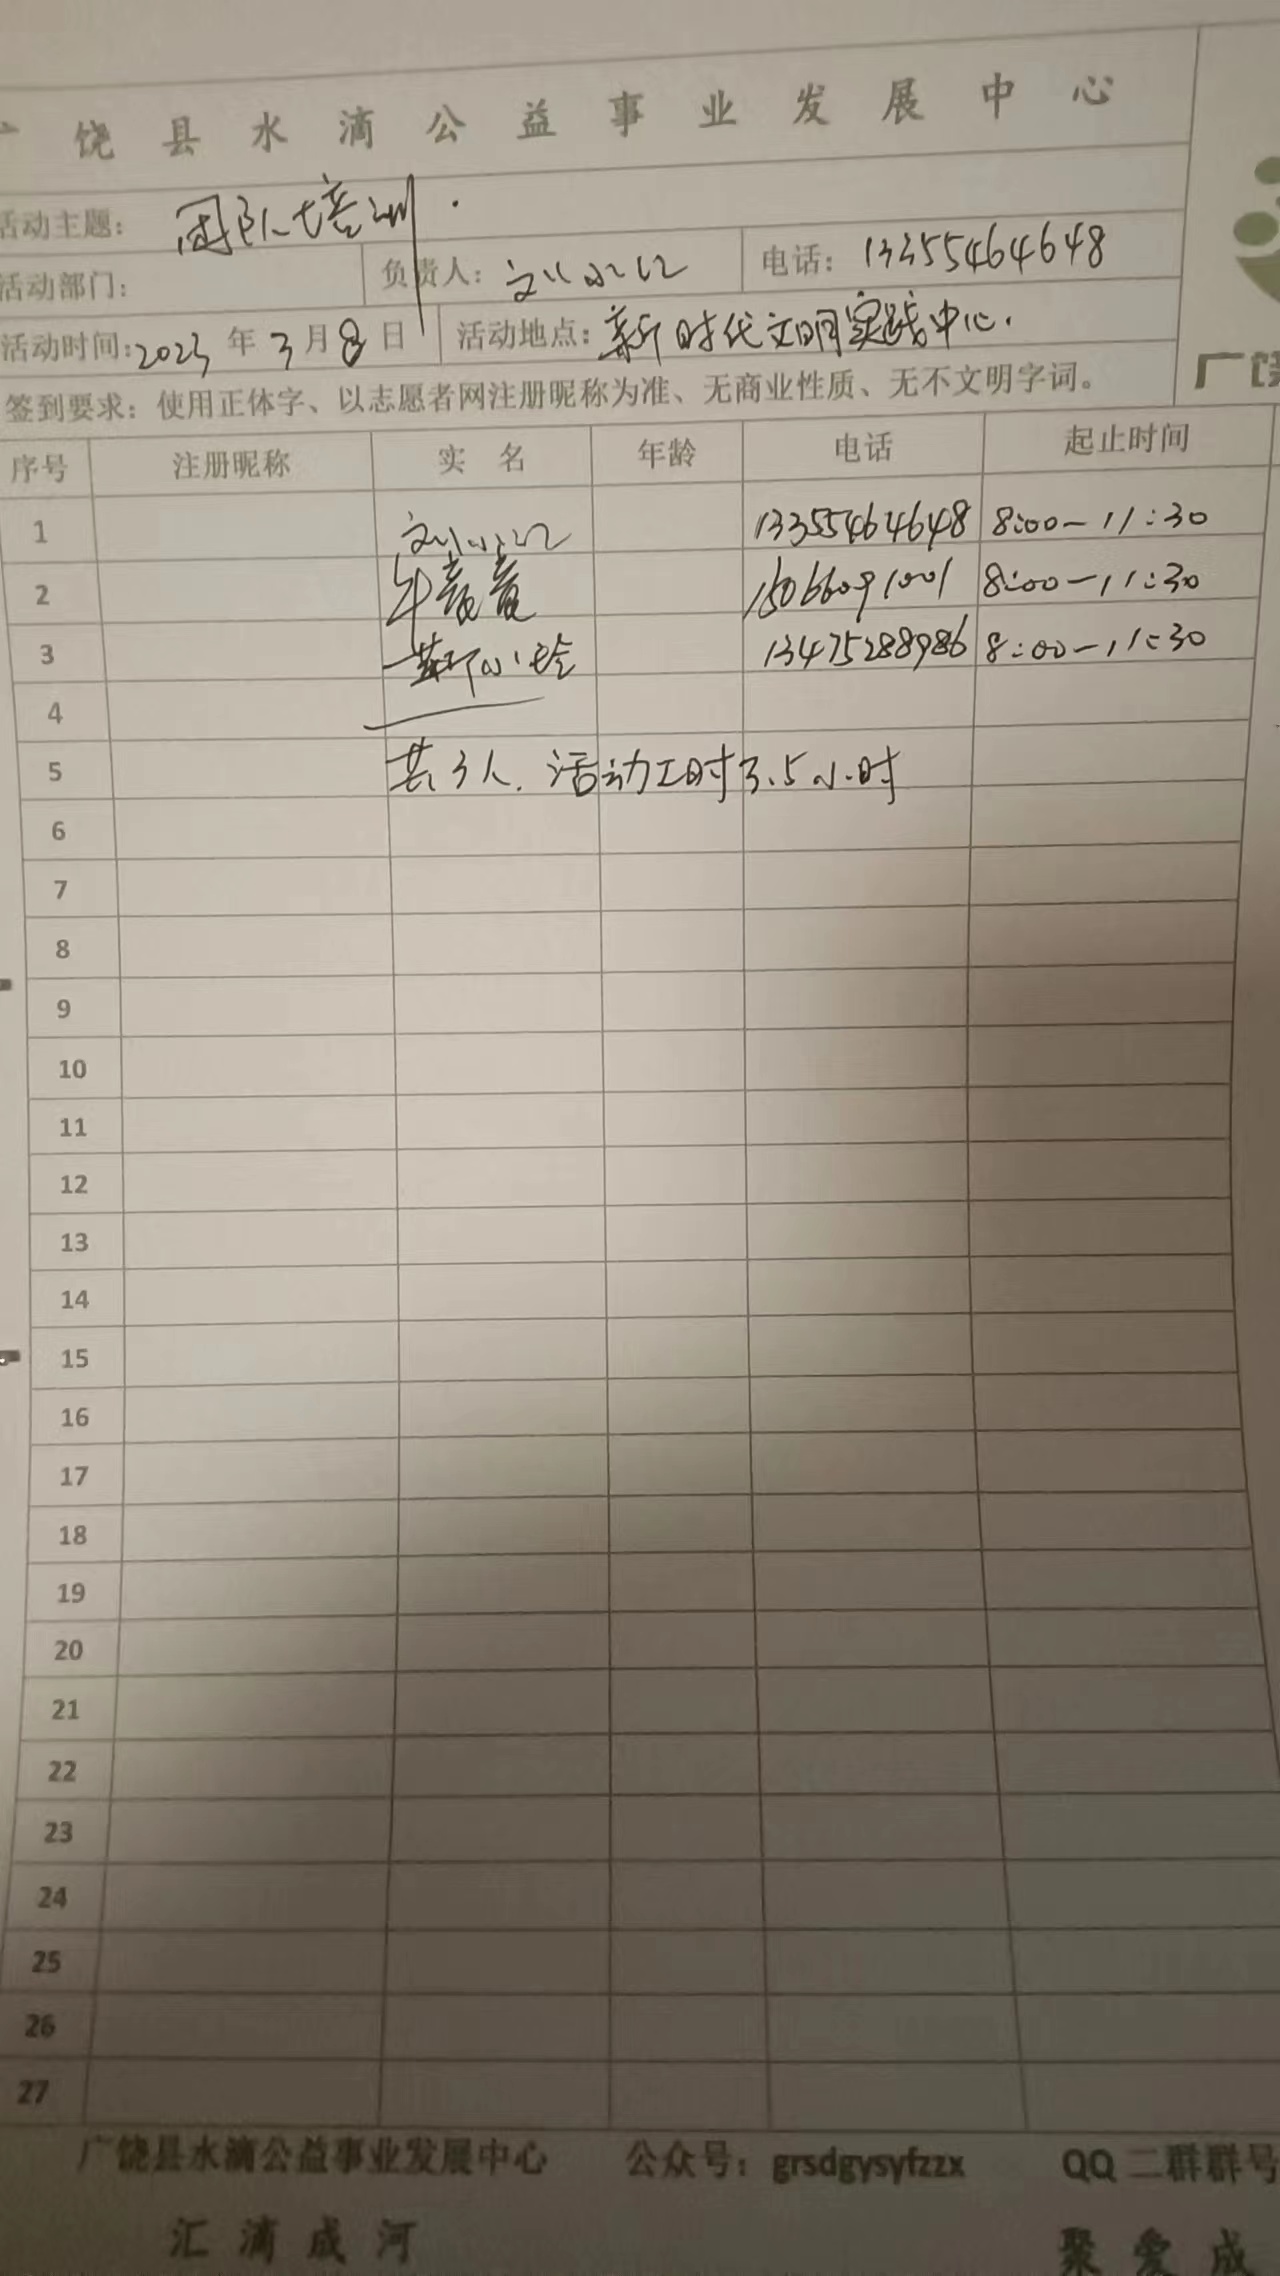 饶县水滴公益事业发展中心
活动主题: 团队培训.
活动部门: 负责人: 刘小江 电话: 13355464648
活动时间: 2023 年 3 月 8 日 活动地点: 新时代文明实践中心.
签到要求: 使用正体字、以志愿者网注册昵称为准、无商业性质、无不文明字词。
序号 注册昵称 实 名 年龄 电话 起止时间
1 刘小江 13355464648 8:00-11:30
2 15066091001 8:00-11:30
3 13475288986 8:00-11:30
4
5 共3人. 活动工时3.5小时
6
7
8
9
10
11
12
13
14
15
16
17
18
19
20
21
22
23
24
25
26
27
广饶县水滴公益事业发展中心 公众号: grsdgysyfzzx QQ 二群群号
汇 滴 成 河 聚 爱 成